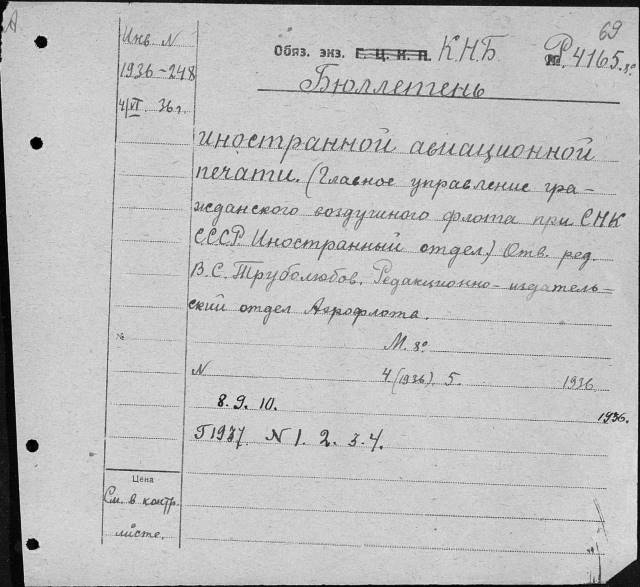 69
Инв. N
1936-248
4/VI 36 г.
Обяз. экз. Г. Ц. К. П. КНБ
Р.4165.8º
Бюллетень
иностранной авиационной
печати. (Главное управление гра-
жданского воздушного флота при СНК
СССР. Иностранный отдел) Отв. ред.
В.С. Труболюбов. Редакционно-издатель-
ский отдел Аэрофлота.
№
М. 8º
N 4 (1936). 5. 1936
8. 9. 10. 1936.
Г1937 N 1. 2. 3. 4.
Цена
См. в контр.
листе.